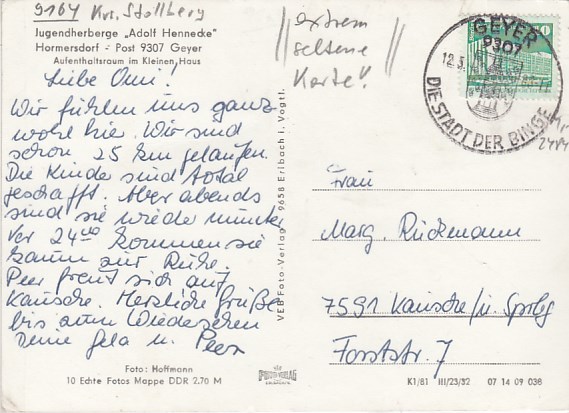 9164 Krs. Stollberg
Jugendherberge „Adolf Hennecke"
Hormersdorf - Post 9307 Geyer
Aufenthaltsraum im Kleinen Haus
//extrem
seltene
Karte!//
GEYER
9307
12.5.
DIE STADT DER BINGE
10
Liebe Omi!
Wir fühlen uns ganz
wohl hie. Wir sind
schon 25 km gelaufen.
Die Kinde sind total
geschafft. Aber abends
sind sie wiede munter
Vor 24°° kommen sie
kaum zur Ruhe.
Peer freut sich auf
Kausche. Herzliche Grüße
bis zum Wiedesehen
Deine Gela u. Peer
Foto: Hoffmann
10 Echte Fotos Mappe DDR 2.70 M
VEB Foto-Verlag 9658 Erlbach i. Vogtl.
Frau
Marg. Rückmann
7591 Kausche/ü. Sprbg
Forststr. 7
K1/81 III/23/32 07 14 09 036